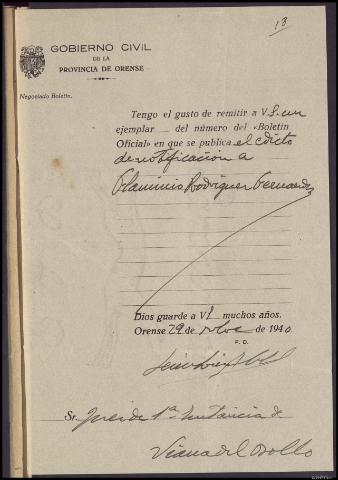 13
GOBIERNO CIVIL
DE LA
PROVINCIA DE ORENSE
Negociado Boletín.
Tengo el gusto de remitir a V S. un
ejemplar del número del «Boletín
Oficial» en que se publica el edicto
de notificación a
Flaminio Rodriguez Fernandez
Dios guarde a V S muchos años.
Orense 29 de de 1940
P. D.
Sr. Juez de 1ª Instancia de
Viana del Bollo